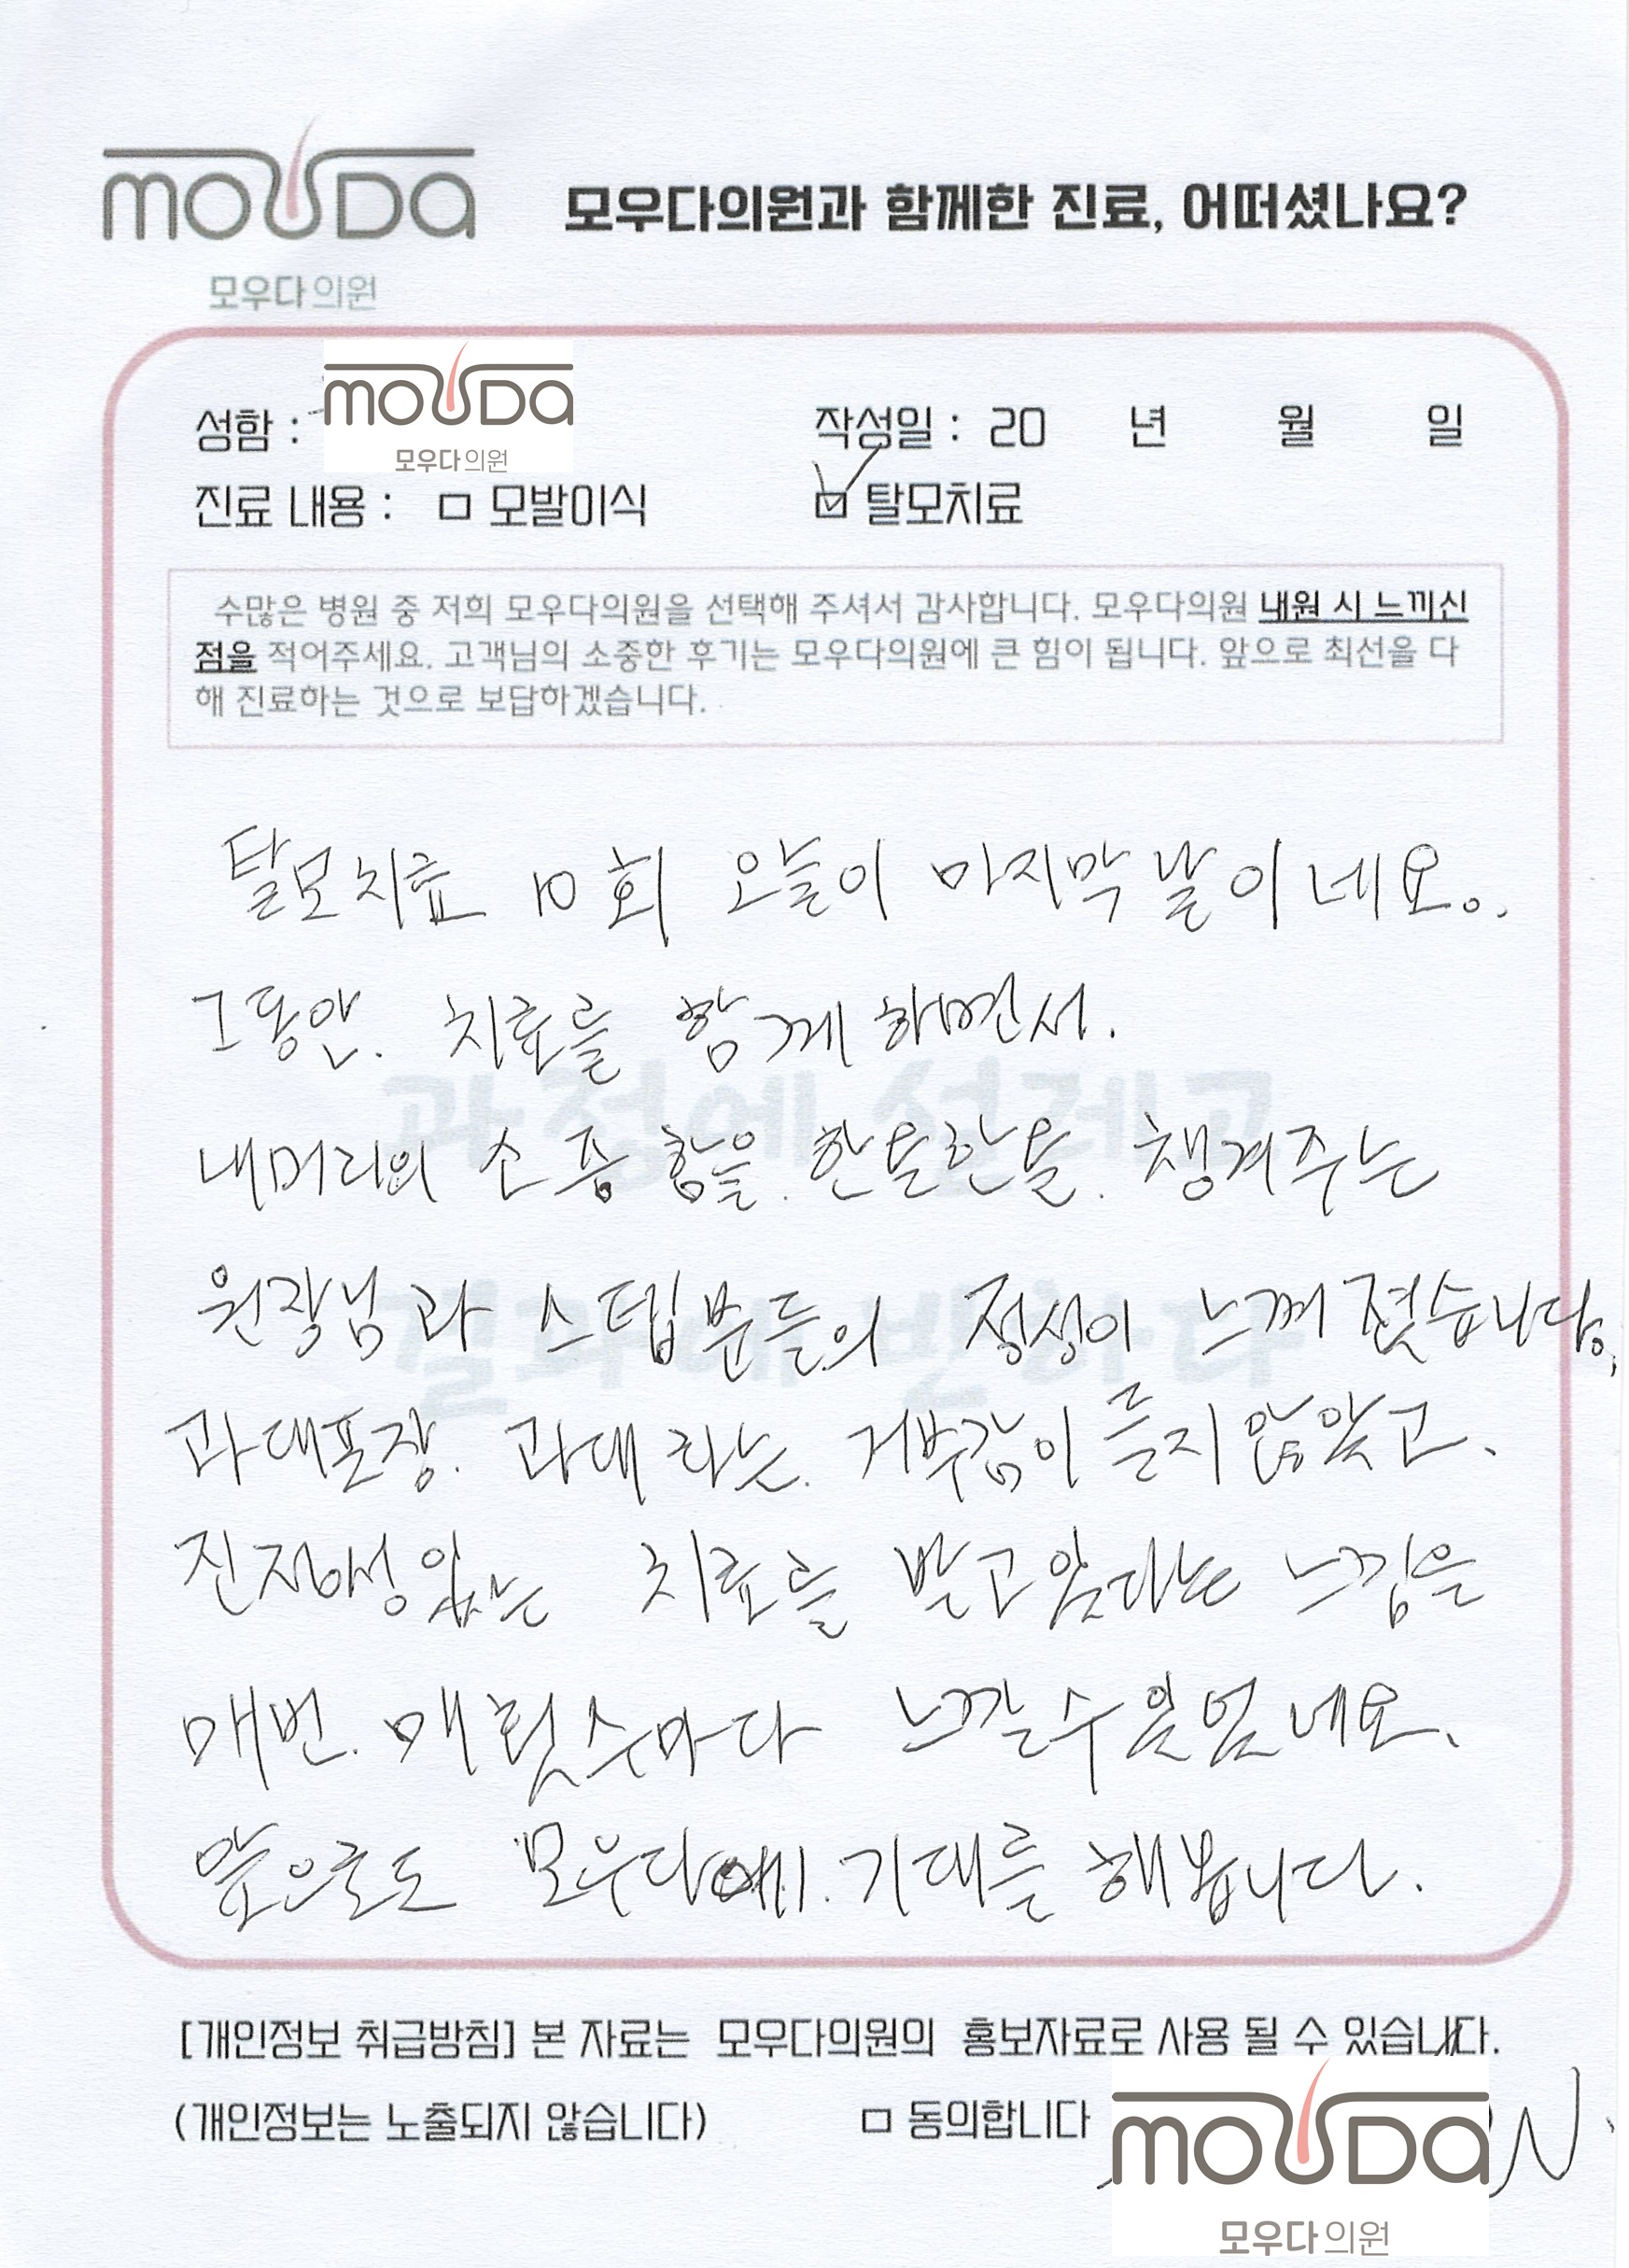 mouDa
모우다의원
모우다의원과 함께한 진료, 어떠셨나요?
성함 :
mouDa
모우다의원
작성일 : 20 년 월 일
진료 내용 : □ 모발이식 ☑ 탈모치료
수많은 병원 중 저희 모우다의원을 선택해 주셔서 감사합니다. 모우다의원 내원 시 느끼신
점을 적어주세요. 고객님의 소중한 후기는 모우다의원에 큰 힘이 됩니다. 앞으로 최선을 다
해 진료하는 것으로 보답하겠습니다.
과정에 설레고
결과에 반하다
탈모치료 10회 오늘이 마지막 날이네요..
그동안. 치료를 함께하면서.
내머리의 소중함을. 한올한올. 챙겨주는
원장님과 스텝분들의 정성이 느껴졌습니다.
과대포장. 과대라는. 거부감이 들지않았고.
진정성있는 치료를 받고있다는 느낌을
매번. 매횟수마다 느낄수있었네요.
앞으로도 모우다에. 기대를 해봅니다.
[개인정보 취급방침] 본 자료는 모우다의원의 홍보자료로 사용 될 수 있습니다.
(개인정보는 노출되지 않습니다) □ 동의합니다
mouDa
모우다의원